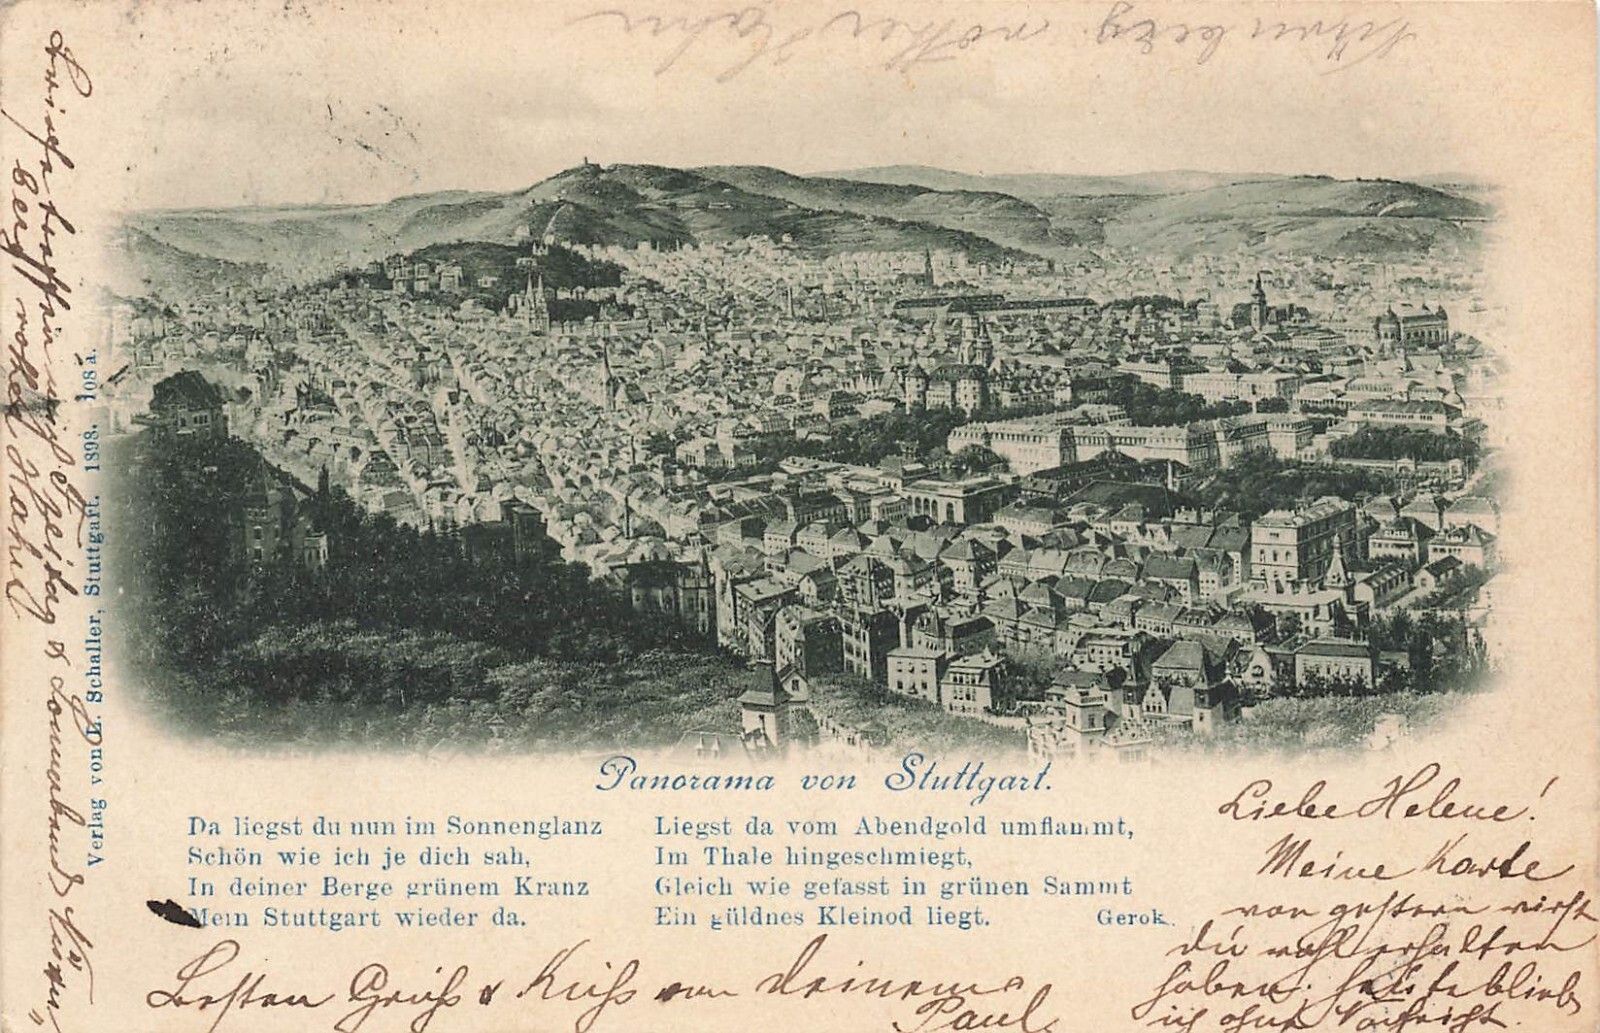 Nürnberg rother Hahn
Panorama von Stuttgart.
Da liegst du nun im Sonnenglanz
Schön wie ich je dich sah,
In deiner Berge grünem Kranz
Mein Stuttgart wieder da.
Liegst da vom Abendgold umflammt,
Im Thale hingeschmiegt,
Gleich wie gefasst in grünen Sammt
Ein güldnes Kleinod liegt.
Gerok.
Liebe Helene!
Meine Karte
von gestern wirst
Du wohl erhalten
haben; heute blieb
ich ohne Nachricht.
Besten Gruß & Kuß von Deinem
Paul
Briefe treffen mich Freitag & Sonnabend Nürn„
berg rother Hahn
Verlag von E. Schaller, Stuttgart. 1898. 108 a.